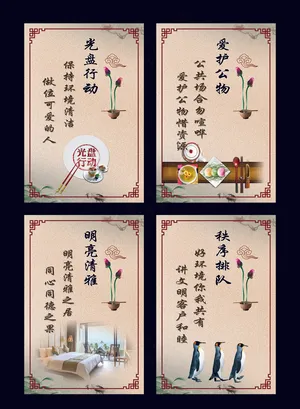 光盘行动
保持环境清洁
做位可爱的人
光盘
行动
爱护公物
公共场合勿喧哗
爱护公物惜资源
明亮清雅
明亮清雅之居
同心同德之果
秩序排队
好环境你我共有
讲文明客户和睦